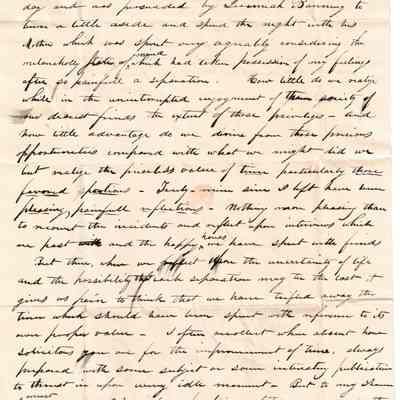 day and was persuaded by Susannah Banning to
turn a little aside and spend the night with his
Mother which was spent very agreeably considering the
melancholy state of mind which had taken possession of my feelings
after so painfull a separation. How little do we realize
while in the uninterrupted enjoyment of the society of
our dearest friends the extent of those priviliges - and
how little advantage do we derive from those precious
oppertunities compared with what we might did we
but realize the priceless value of time particularly those
favored portions - Truly mine since I left have been
pleasing, painfull reflections - Nothing more pleasing than
to recount the incidents and reflect upon interviews which
are past and the happy hours we have spent with friends
But then, when we reflect upon the uncertainty of life
and the possibility that each separation may be the last it
gives us pain to think that we have trifled away the
time which should have been spent with reference to its
more proper value - I often recollect when about home
solicitous you are for the improvement of time, always
prepared with some subject or some interesting publication
to thrust in upon every idle moment - But to my
must